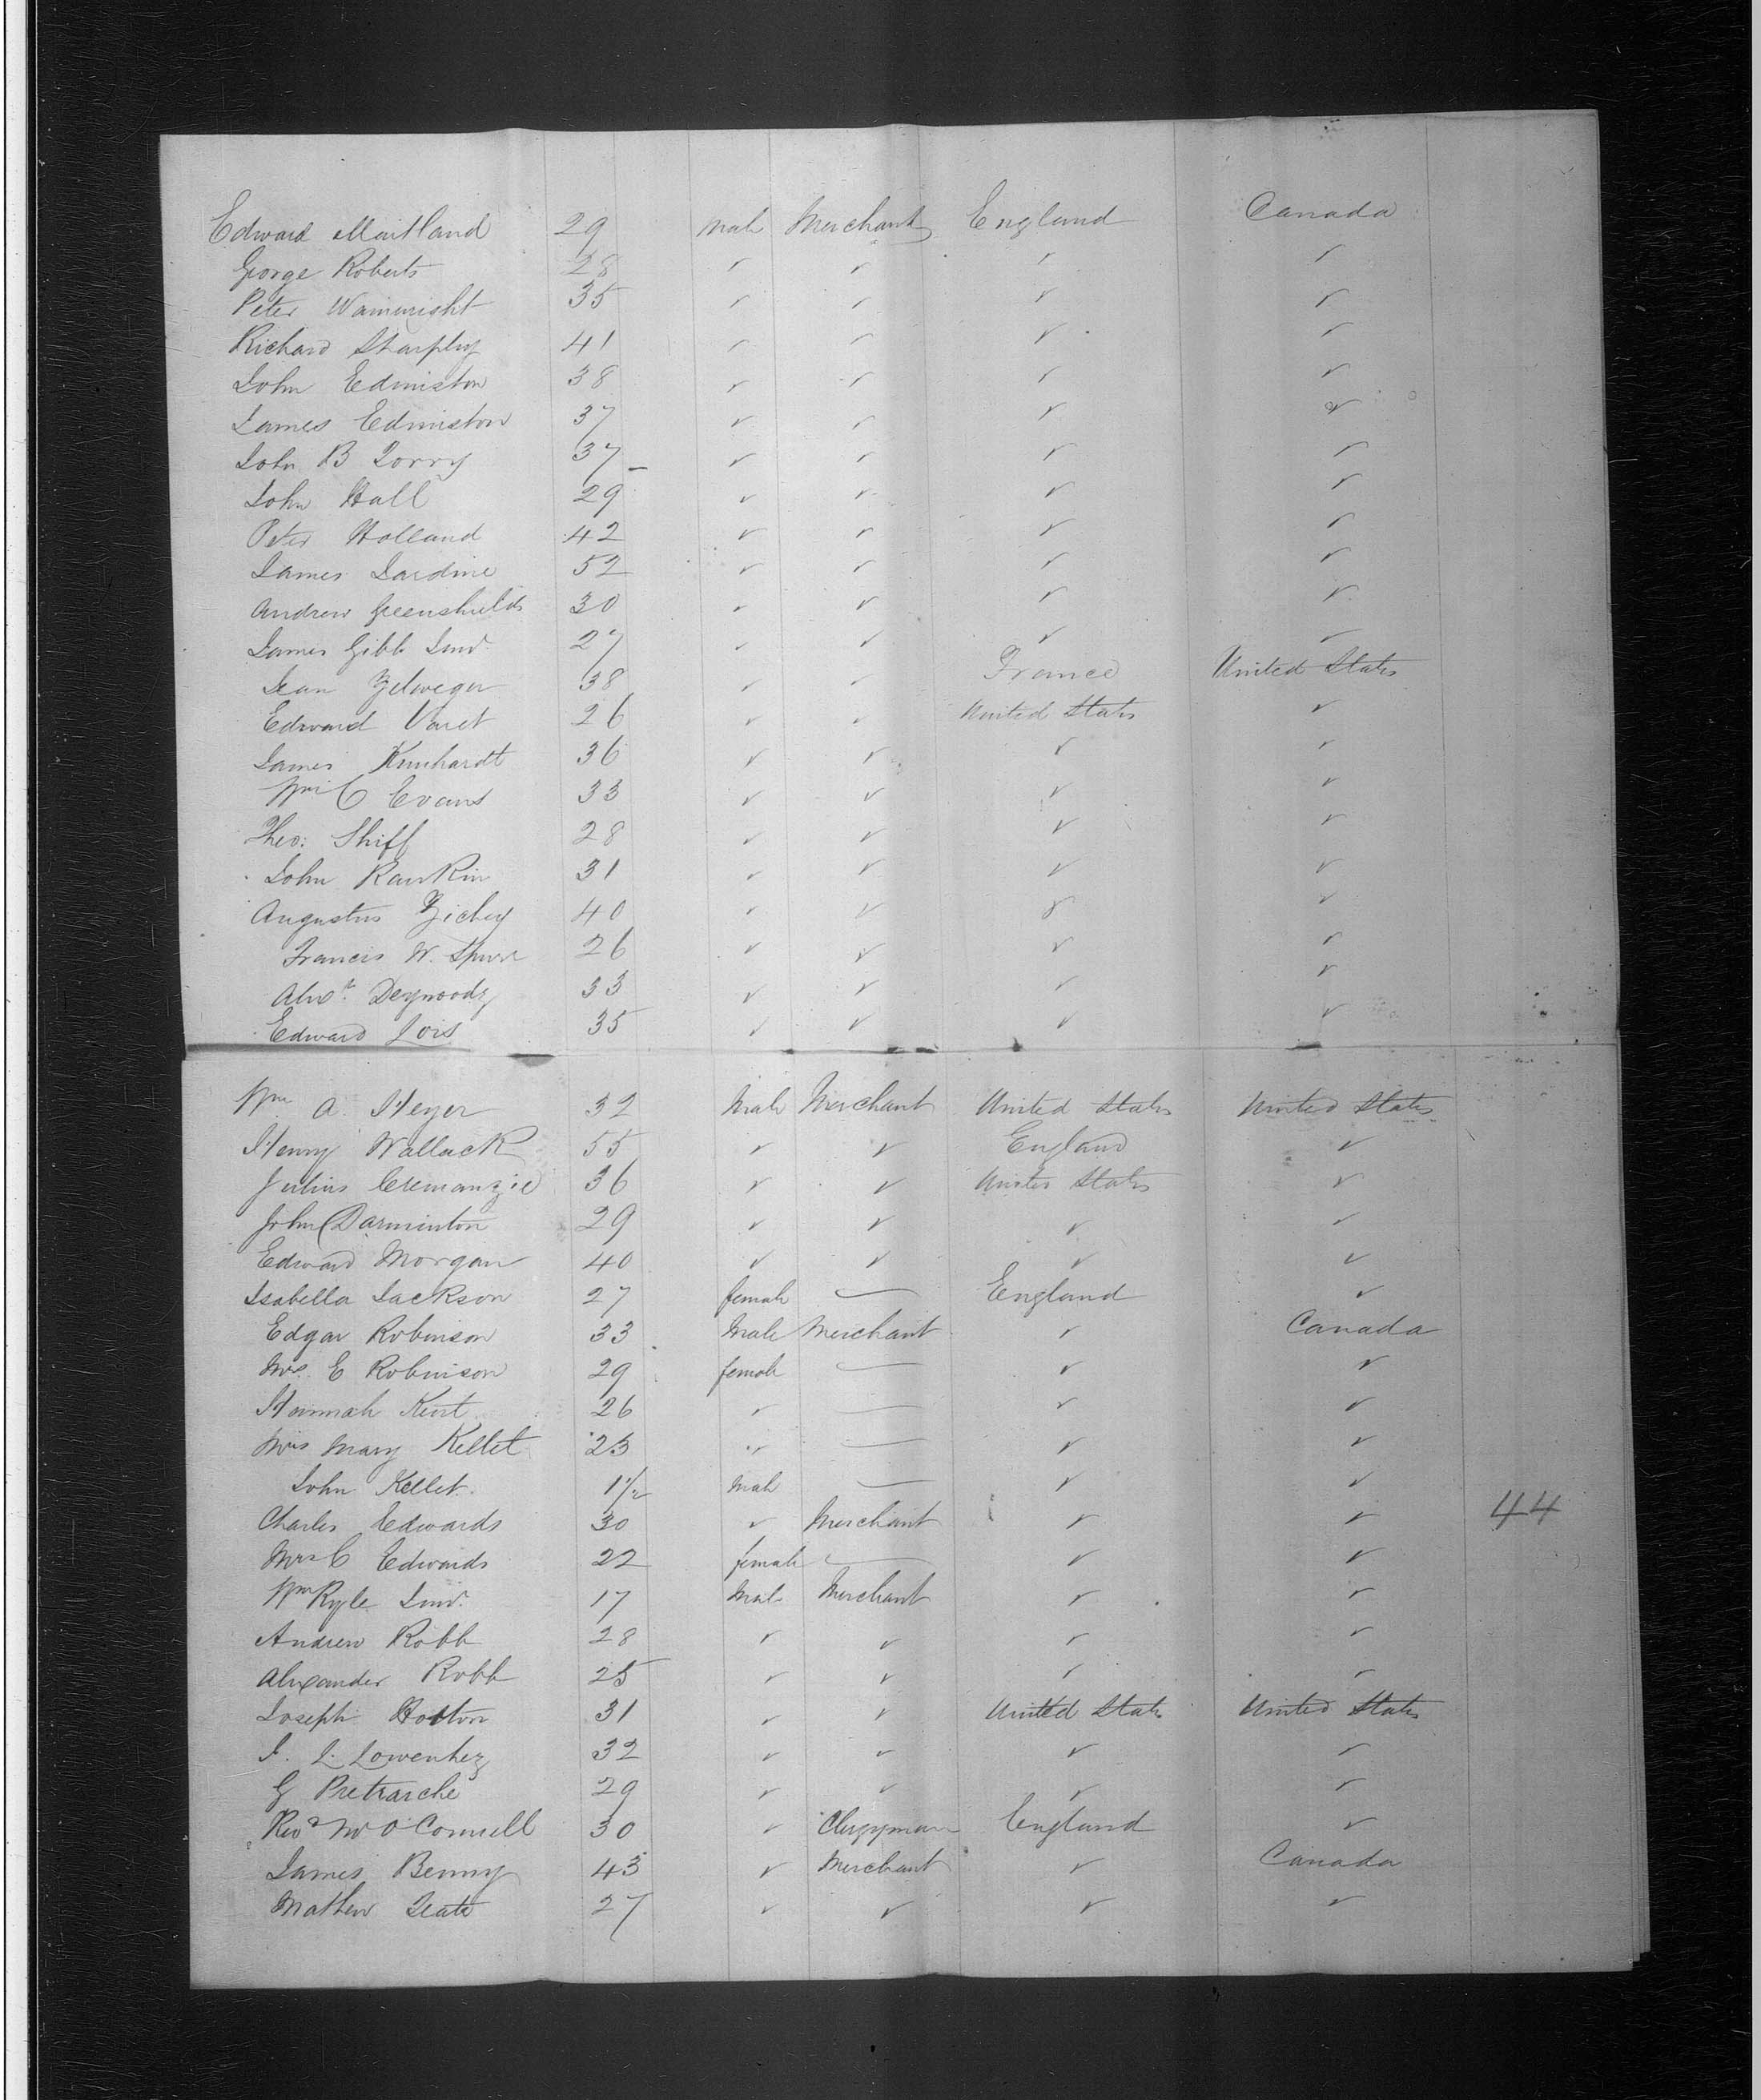 Edward Maitland 29 Male Merchant England Canada
George Roberts 28 " " " "
Peter Wainwright 35 " " " "
Richard Sharpley 41 " " " "
John Edmiston 38 " " " "
James Edmiston 37 " " " "
John B Torry 37 " " " "
John Hall 29 " " " "
Peter Holland 42 " " " "
James Jardine 52 " " " "
Andrew Greenshields 30 " " " "
James Gibb Junr. 27 " " " "
Jean Zelweger 38 " " France United States
Edward Varet 26 " " United States "
James Kunhardt 36 " " " "
Wm C Evans 33 " " " "
Theo: Shiff 28 " " " "
John Rankin 31 " " " "
Augustus Zichey 40 " " " "
Francis W. 26 " " " "
Alexr. 33 " " " "
Edward Lois 35 " " " "
Wm A. Heyer 32 Male Merchant United States United States
Henry Wallack 55 " " England "
Julius Cremanzie 36 " " United States "
John Darminton 29 " " " "
Edward Morgan 40 " " " "
Isabella Jackson 27 female — England "
Edgar Robinson 33 Male Merchant " Canada
Mrs. E Robinson 29 female — " "
Hannah Kent 26 " — " "
Mrs Mary Kellet 23 " — " "
John Kellet 1 1/2 Male — " "
Charles Edwards 30 " Merchant " " 44
Mrs C Edwards 22 female — " "
Wm Ryle Junr. 17 Male Merchant " "
Andrew Robb 28 " " " "
Alexander Robb 25 " " " "
Joseph Hotton 31 " " United States United States
32 " " " "
G Pretrarche 29 " " " "
Revd Mr O'Connell 30 " Clergyman England "
James Benny 43 " Merchant " Canada
Mathew 27 " " " "